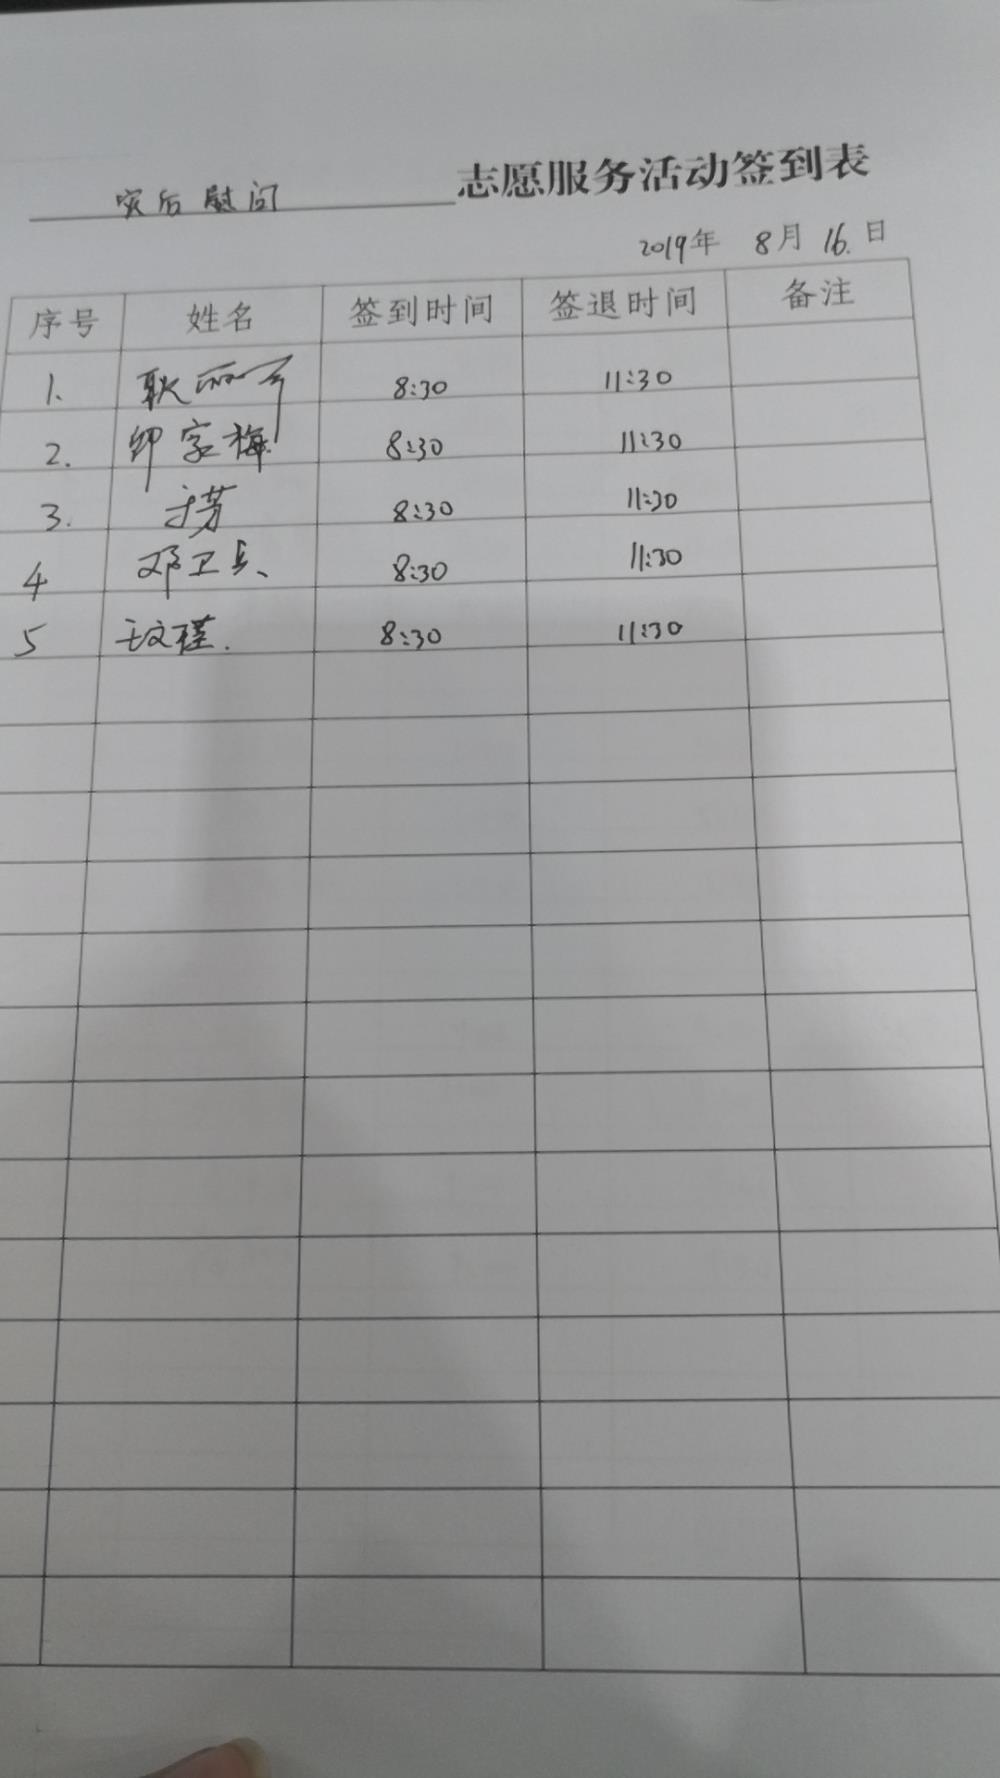 灾后慰问 志愿服务活动签到表
2019年 8月 16.日
序号 姓名 签到时间 签退时间 备注
1. 8:30 11:30
2. 印家梅 8:30 11:30
3. 于芳 8:30 11:30
4 邓卫兵 8:30 11:30
5 王文瑾. 8:30 11:30